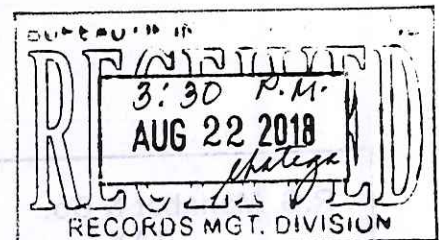 RECEIVED
3:30 P.M.
AUG 22 2018
RECORDS MGT. DIVISION